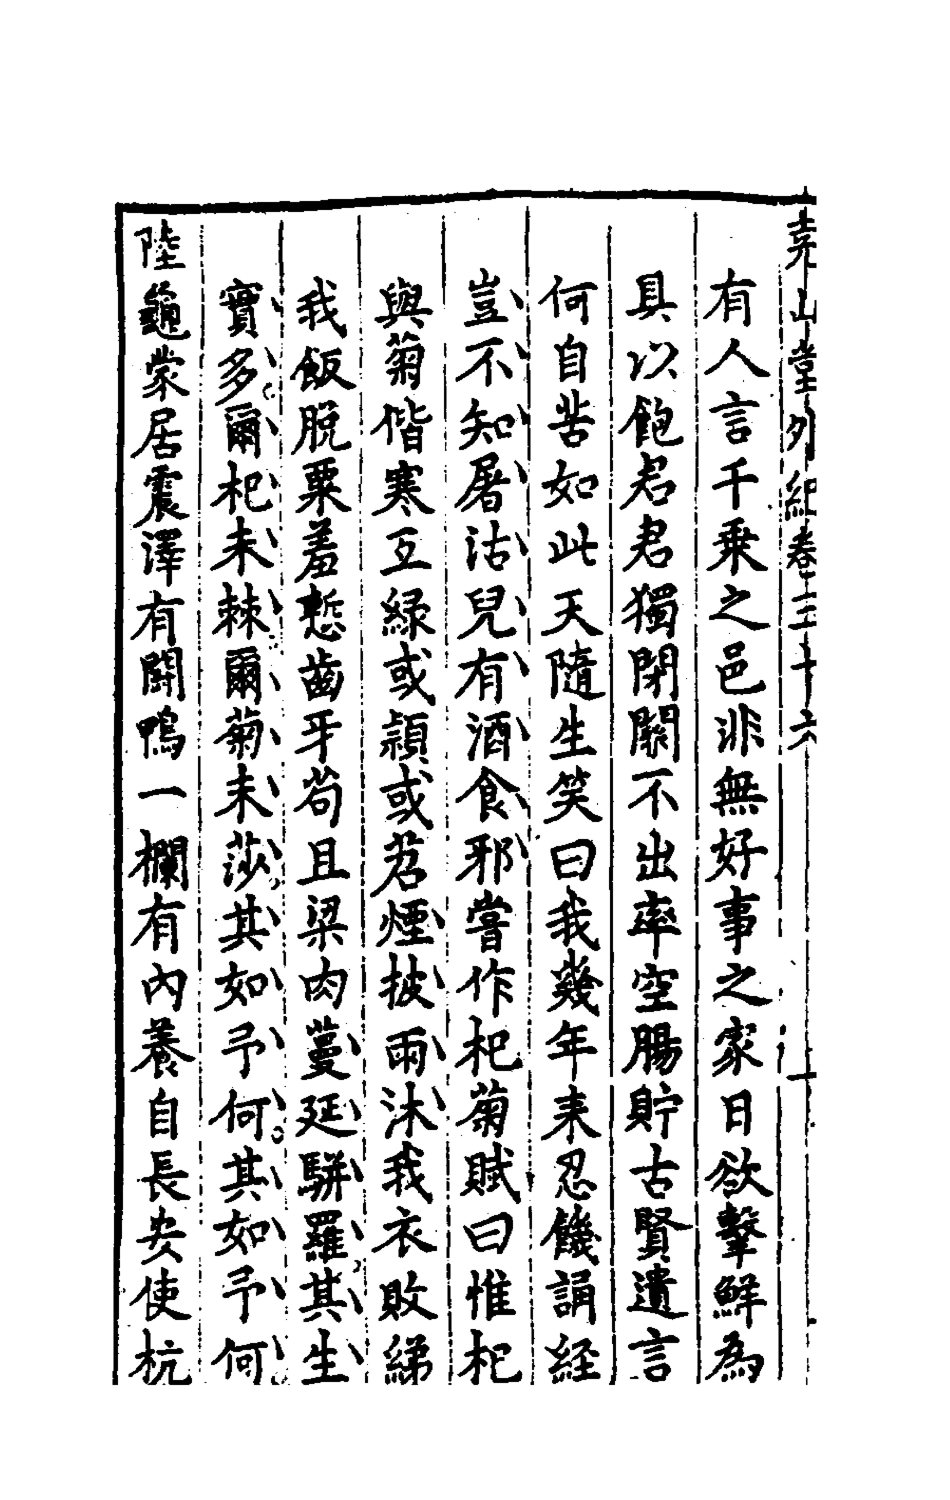 堯山堂外紀卷三十六 一
有人言千乗之邑非無好事之家日欲擊鮮為
具以飽君君獨閉關不出率空腸貯古賢遺言
何自苦如此天隨生笑曰我幾年来忍饑誦経
豈不知屠沽兒有酒食邪嘗作杞菊賦曰惟杞
與菊偕寒互緑或頴或苕煙披雨沐我衣敗綈
我飯脫粟羞慙齒牙苟且梁肉蔓延駢羅其生
實多爾杞未棘爾菊未莎其如予何其如予何
陸龜蒙居震澤有鬬鴨一欄有內養自長安使杭